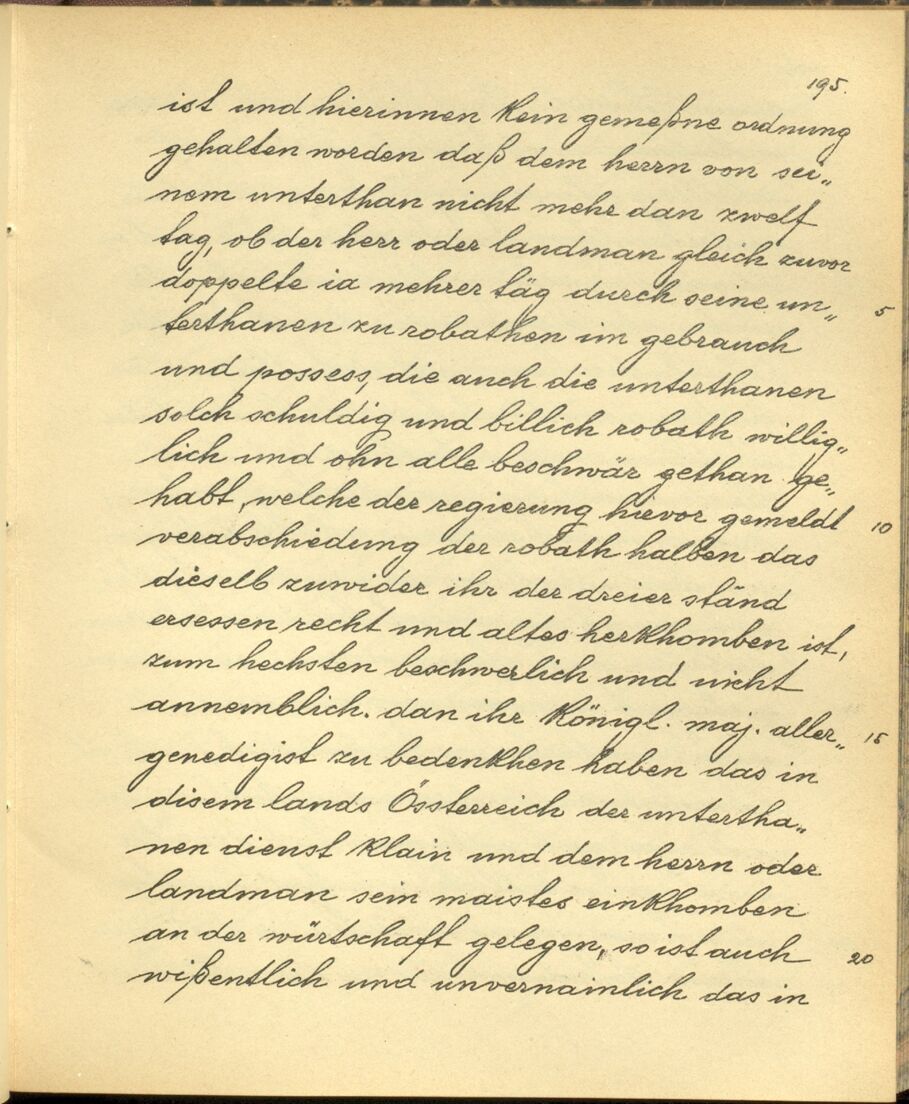 195.
ist und hierinnen kein gemeßne ordnung
gehalten worden daß dem herrn von sei„
nem unterthan nicht mehr dan zwelf
tag, ob der herr oder landman gleich zuvor
doppelte ia mehrer täg durch seine un„ 5
terthanen zu robathen im gebrauch
und possess, die auch die unterthanen
solch schuldig und billich robath willig„
lich und ohn alle beschwär gethan ge„
habt, welche der regierung hievor gemeldt 10
verabschiedung der robath halben das
dieselb zuwider ihr der dreier ständ
ersessen recht und altes herkhomben ist,
zum hechsten beschwerlich und nicht
annemblich. dan ihr königl. maj. aller„ 15
genedigist zu bedenkhen haben das in
disem lands Össterreich der untertha„
nen dienst klain und dem herrn oder
landman sein maistes einkhomben
an der würtschaft gelegen, so ist auch 20
wißentlich und unvernainlich das in